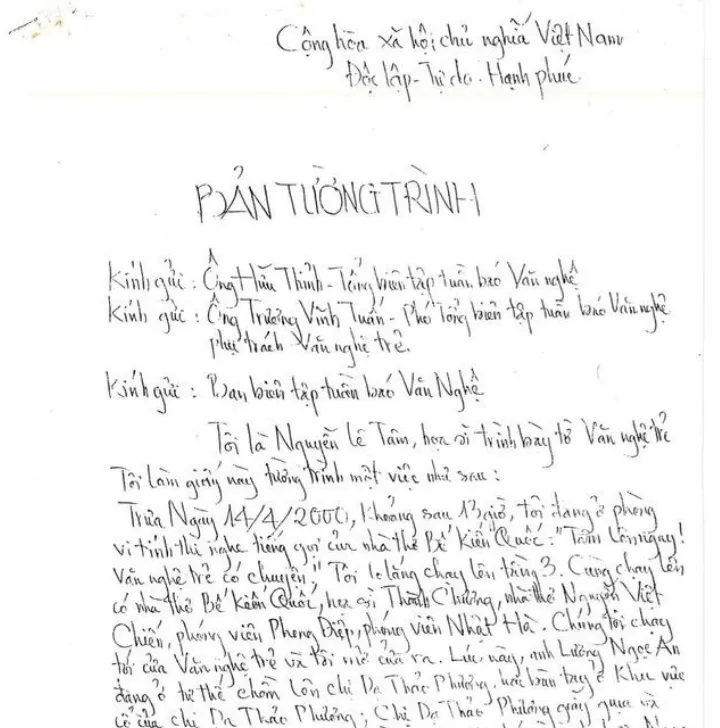 Cộng hòa xã hội chủ nghĩa Việt Nam
Độc lập - Tự do - Hạnh phúc
BẢN TƯỜNG TRÌNH
Kính gửi : Ông Hữu Thỉnh - Tổng biên tập tuần báo Văn nghệ
Kính gửi : Ông Trương Vĩnh Tuấn - Phó Tổng biên tập tuần báo Văn nghệ
phụ trách Văn nghệ trẻ.
Kính gửi : Ban biên tập tuần báo Văn Nghệ
Tôi là Nguyễn Lê Tâm, họa sĩ trình bày tờ Văn nghệ trẻ
Tôi làm giấy này tường trình một việc như sau :
Trưa Ngày 14/4/2000, khoảng sau 13 giờ, tôi đang ở phòng
vi tính thì nghe tiếng gọi của nhà thơ Bế Kiến Quốc : "Tâm lên ngay!
Văn nghệ trẻ có chuyện". Tôi lo lắng chạy lên tầng 3. Cùng chạy lên
có nhà thơ Bế Kiến Quốc, họa sĩ Thành Chương, nhà thơ Nguyễn Việt
Chiến, phóng viên Phong Điệp, phóng viên Nhật Hà. Chúng tôi chạy
tới cửa Văn nghệ trẻ và tôi mở cửa ra. Lúc này, anh Lương Ngọc An
đang ở tư thế chồm lên chị Dạ Thảo Phương, hai bàn tay ở khu vực
cổ của chị Dạ Thảo Phương. Chị Dạ Thảo Phương giãy giụa và